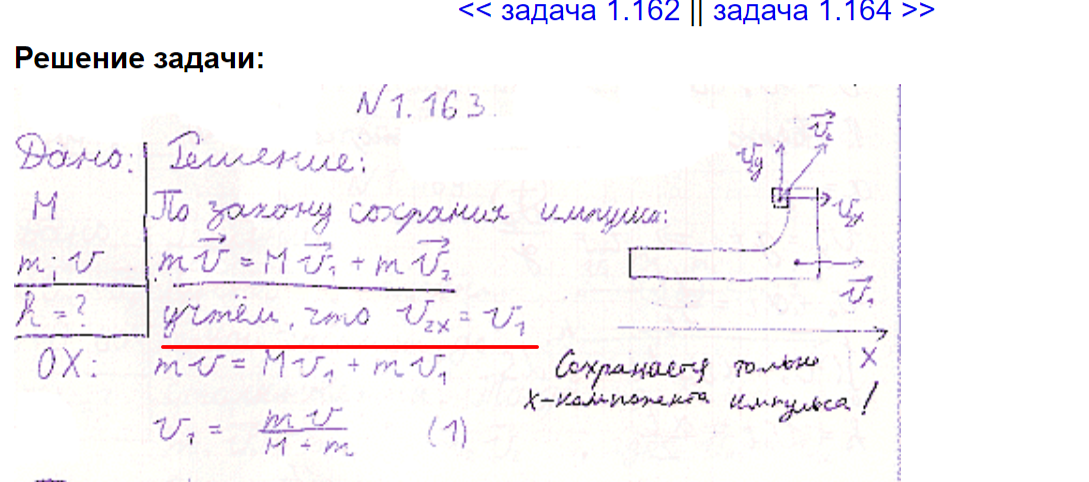 << задача 1.162 || задача 1.164 >>
Решение задачи:
N 1.163.
Дано: Решение:
M По закону сохрания импулса:
m; v mv⃗ = Mv⃗₁ + mv⃗₂
h = ? учтём, что v₂ₓ = v₁
OX: mv = Mv₁ + mv₁
v₁ = mv / (M + m) (1)
v⃗₂
v_y
v_x
v⃗₁
X
Сохраняется только
X-компонента импульса!